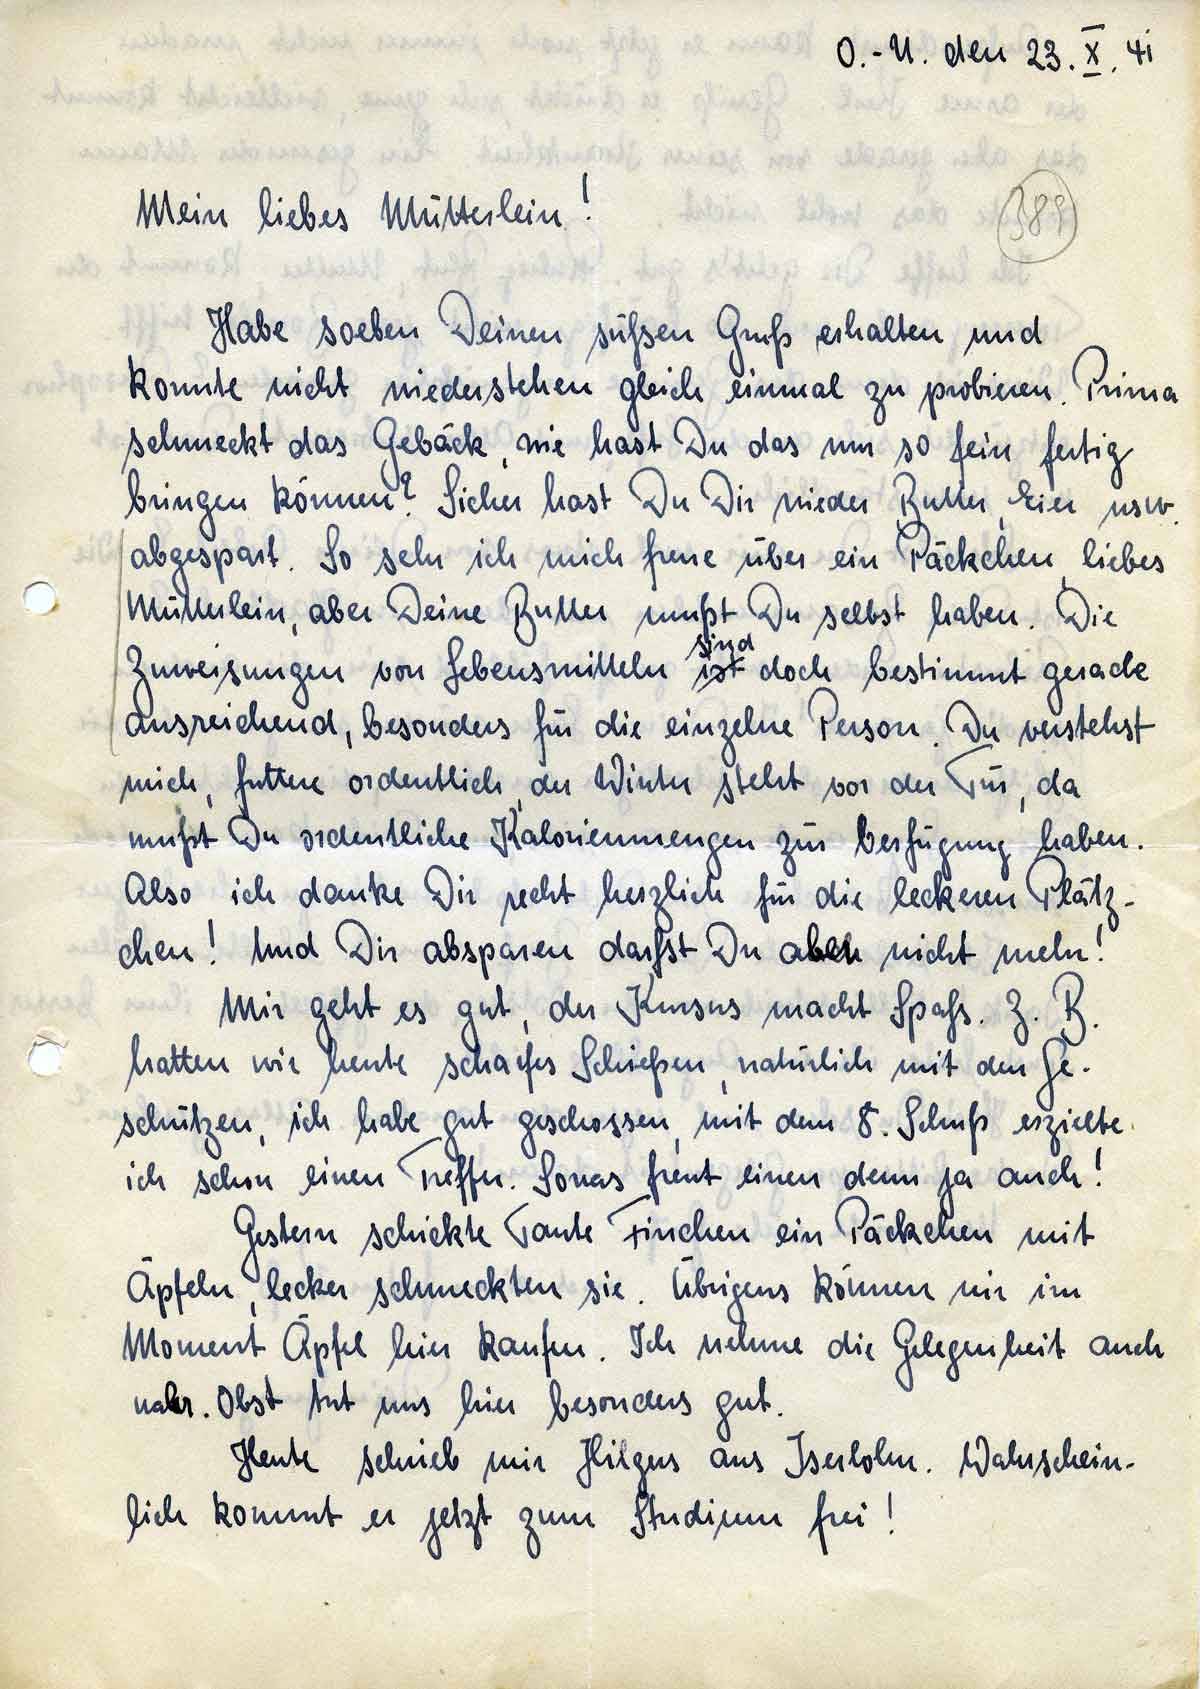 O.-U. den 23. X. 41
389
Mein liebes Mütterlein!
Habe soeben Deinen süßen Gruß erhalten und
konnte nicht wiederstehen gleich einmal zu probieren. Prima
schmeckt das Gebäck, wie hast Du das nur so fein fertig
bringen können? Sicher hast Du Dir wieder Butter, Eier usw.
abgespart. So sehr ich mich freue über ein Päckchen, liebes
Mütterlein, aber Deine Butter mußt Du selbst haben. Die
sind
Zuweisungen von Lebensmitteln ist doch bestimmt gerade
ausreichend, besonders für die einzelne Person. Du verstehst
mich, futtere ordentlich, der Winter steht vor der Tür, da
mußt Du ordentliche Kalorienmengen zur Verfügung haben.
Also ich danke Dir recht herzlich für die leckeren Plätz-
chen! Und Dir absparen darfst Du aber nicht mehr!
Mir geht es gut, der Kursus macht Spaß. Z. B.
hatten wir heute scharfes Schießen, natürlich mit den Ge-
schützen, ich habe gut geschossen, mit dem 8. Schuß erzielte
ich schon einen Treffer. Sowas freut einen denn ja auch!
Gestern schickte Tante Finchen ein Päckchen mit
Äpfeln, lecker schmeckten sie. Übrigens können wir im
Moment Äpfel hier kaufen. Ich nehme die Gelegenheit auch
wahr. Obst tut uns hier besonders gut.
Heute schrieb mir Hilgers aus Iserlohn. Wahrschein-
lich kommt er jetzt zum Studium frei!